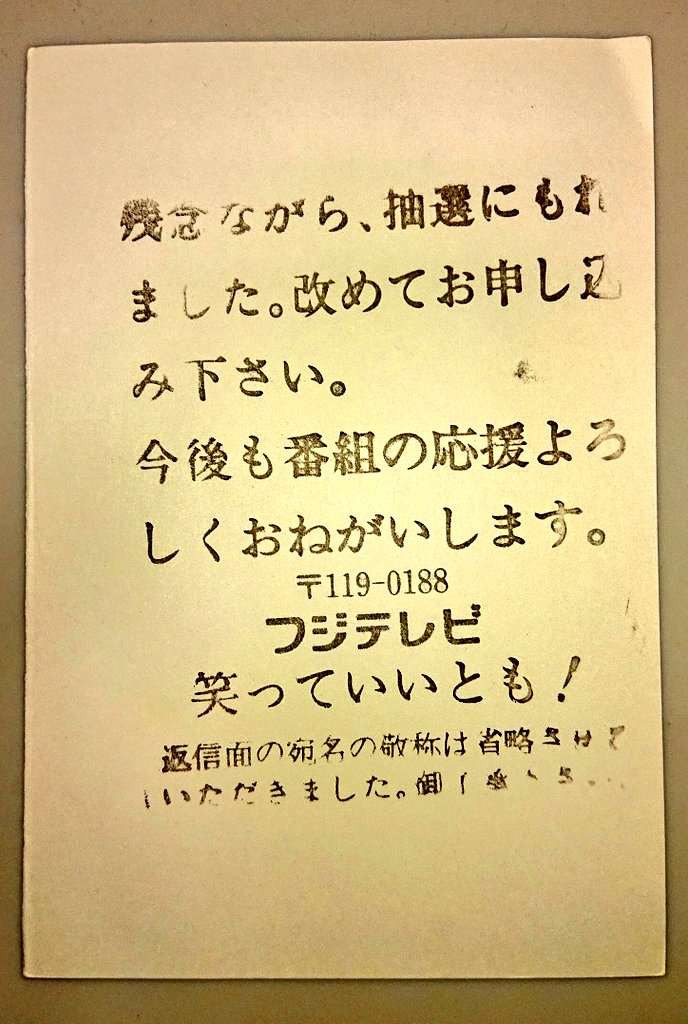 残念ながら、抽選にもれ
ました。改めてお申し込
み下さい。
今後も番組の応援よろ
しくおねがいします。
〒119-0188
フジテレビ
笑っていいとも!
返信面の宛名の敬称は省略させて
いただきました。御了承